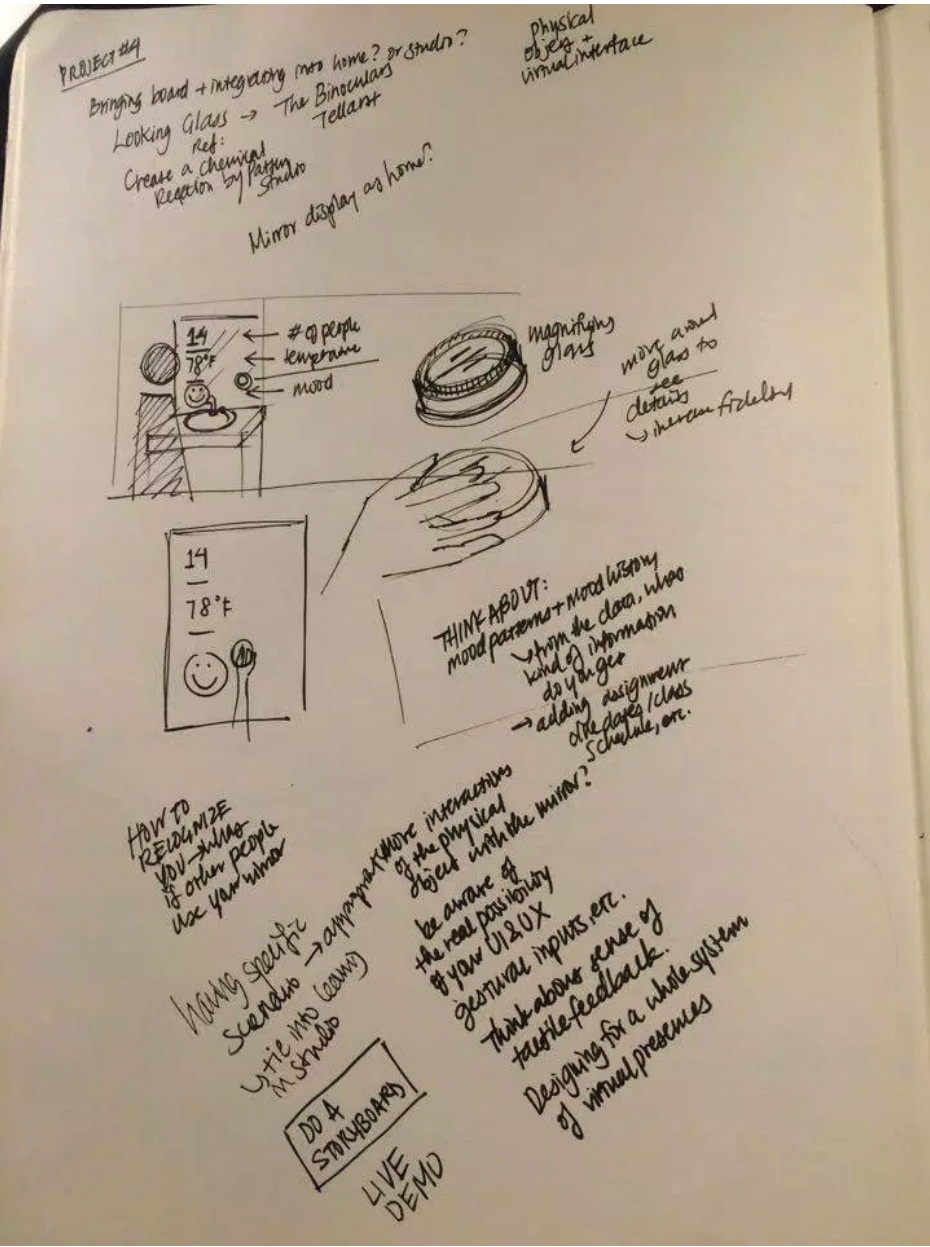 PROJECT #4
Bringing board + integrating into home? or studio?
Looking Glass → The Binoculars
Tellart
Ref:
Create a chemical
Reaction by Patten
Studio
physical
object +
virtual interface
Mirror display as home?
14
78°F
← # of people
← temperature
← mood
magnifying
glass
move around
glass to
see
details
↳ increase fidelity
14
78°F
THINK ABOUT:
mood patterns + mood history
↳ from the data, what
kind of information
do you get
→ adding assignment
due dates/class
schedule, etc.
HOW TO
RECOGNIZE
YOU → what
if other people
use your mirror
having specific
scenario → appropriate
↳ tie into
in studio
more interactions
of the physical
object with the mirror?
be aware of
the real possibility
of your UI & UX
gestural inputs, etc.
Think about sense of
tactile feedback.
Designing for a whole system
of virtual presences
DO A
STORYBOARD
LIVE
DEMO